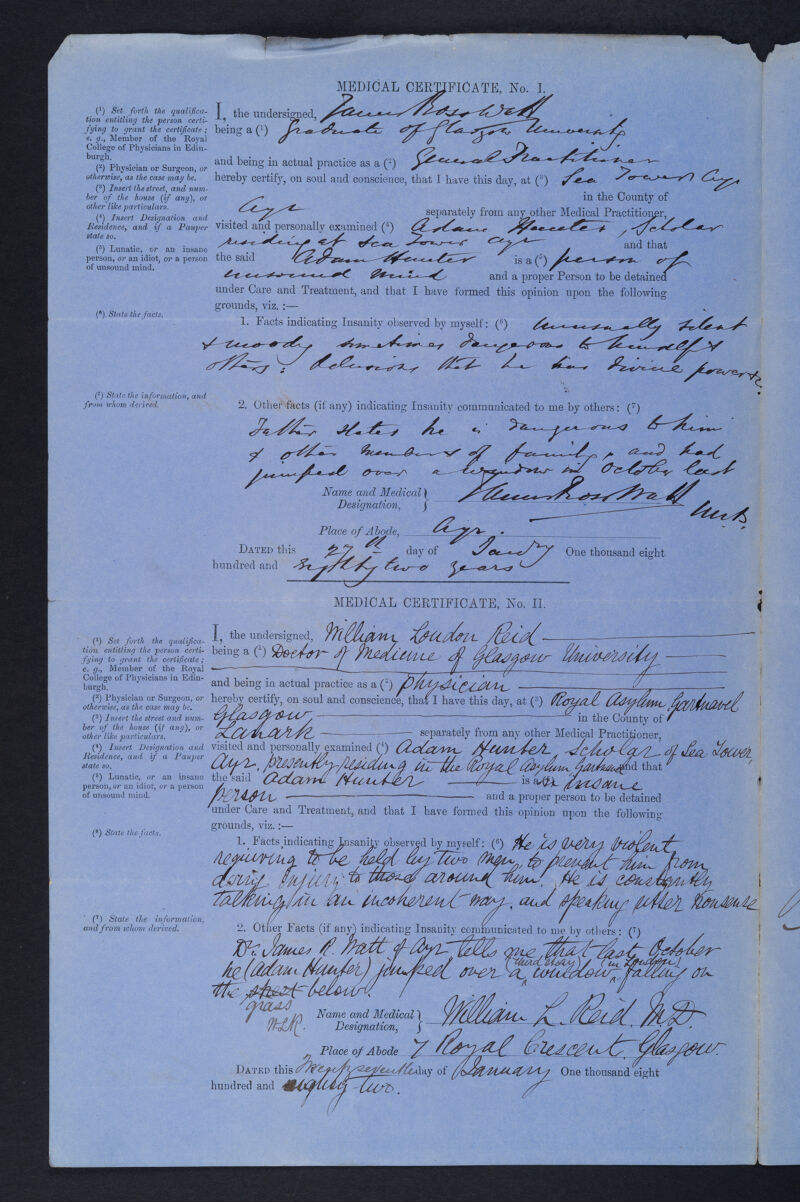 MEDICAL CERTIFICATE, No. I.
(¹) Set forth the qualifica-
tion entitling the person certi-
fying to grant the certificate;
e. g., Member of the Royal
College of Physicians in Edin-
burgh.
(²) Physician or Surgeon, or
otherwise, as the case may be.
(³) Insert the street, and num-
ber of the house (if any), or
other like particulars.
(⁴) Insert Designation and
Residence, and if a Pauper
state so.
(⁵) Lunatic, or an insane
person, or an idiot, or a person
of unsound mind.
(⁶) State the facts.
(⁷) State the information, and
from whom derived.
I, the undersigned, James Ross Watt
being a (¹) Graduate of Glasgow University
and being in actual practice as a (²) General Practitioner
hereby certify, on soul and conscience, that I have this day, at (³) Sea Tower Ayr
in the County of
Ayr separately from any other Medical Practitioner,
visited and personally examined (⁴) Adam Hunter, Scholar
residing at Sea Tower Ayr and that
the said Adam Hunter is a (⁵) person of
unsound mind and a proper Person to be detained
under Care and Treatment, and that I have formed this opinion upon the following
grounds, viz.:—
1. Facts indicating Insanity observed by myself: (⁶) Unusually silent
& moody sometimes dangerous to himself &
others; Delusions that he has divine power &c.
2. Other facts (if any) indicating Insanity communicated to me by others: (⁷)
Father states he is dangerous to him
& other members of family, and had
jumped over a window in October last
Name and Medical Designation, James Ross Watt M.B.
Place of Abode, Ayr.
DATED this 27th day of Jany One thousand eight
hundred and Eighty two years
MEDICAL CERTIFICATE, No. II.
(¹) Set forth the qualifica-
tion entitling the person certi-
fying to grant the certificate;
e. g., Member of the Royal
College of Physicians in Edin-
burgh.
(²) Physician or Surgeon, or
otherwise, as the case may be.
(³) Insert the street and num-
ber of the house (if any), or
other like particulars.
(⁴) Insert Designation and
Residence, and if a Pauper
state so.
(⁵) Lunatic, or an insane
person, or an idiot, or a person
of unsound mind.
(⁶) State the facts.
(⁷) State the information,
and from whom derived.
I, the undersigned, William Loudon Reid
being a (¹) Doctor of Medicine of Glasgow University
and being in actual practice as a (²) Physician
hereby certify, on soul and conscience, that I have this day, at (³) Royal Asylum Gartnavel
Glasgow in the County of
Lanark separately from any other Medical Practitioner,
visited and personally examined (⁴) Adam Hunter, Scholar of Sea Tower,
Ayr, presently residing in the Royal Asylum Gartnavel and that
the said Adam Hunter is an insane
person and a proper person to be detained
under Care and Treatment, and that I have formed this opinion upon the following
grounds, viz.:—
1. Facts indicating Insanity observed by myself: (⁶) He is very violent
requiring to be held by two men, to prevent him from
doing injury to those around him. He is constantly
talking in an incoherent way, and speaking utter nonsense
2. Other Facts (if any) indicating Insanity communicated to me by others: (⁷)
Dr. James R. Watt of Ayr, tells me that last October
he (Adam Hunter) jumped over a third story window (in London) falling on
the street below.
grass
W.L.R.
Name and Medical Designation, William L. Reid. M.D.
Place of Abode 7 Royal Crescent, Glasgow.
DATED this Twenty seventh day of January One thousand eight
hundred and eighty-two.